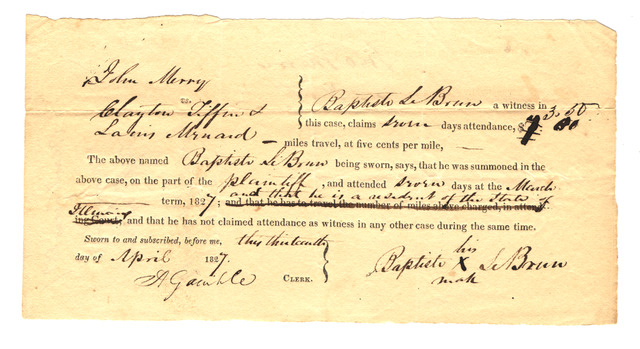 John Merry
vs.
Clayton Tiffin &
Louis Menard
Baptiste Le Brun a witness in
this case, claims seven days attendance, $ 3.50
— miles travel, at five cents per mile, —
The above named Baptiste Le Brun being sworn, says, that he was summoned in the
above case, on the part of the plaintiff, and attended seven days at the March
and that he is a resident of the State of
term, 1827; and that he has to travel the number of miles above charged, in attend-
Illinois
ing Court; and that he has not claimed attendance as witness in any other case during the same time.
Sworn to and subscribed, before me, this thirteenth
day of April 1827.
A Gamble CLERK.
his
Baptiste X Le Brun
mark